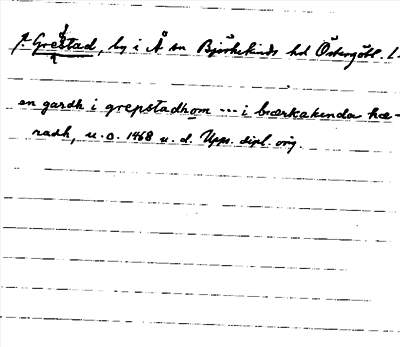 f. Grestad, by i Å sn Björkekinds hd Östergötl. l.
en gardh i grepstadhom --- i bærkakinda hæ-
radh, u. o. 1468 u. d. Upps. dipl. orig.